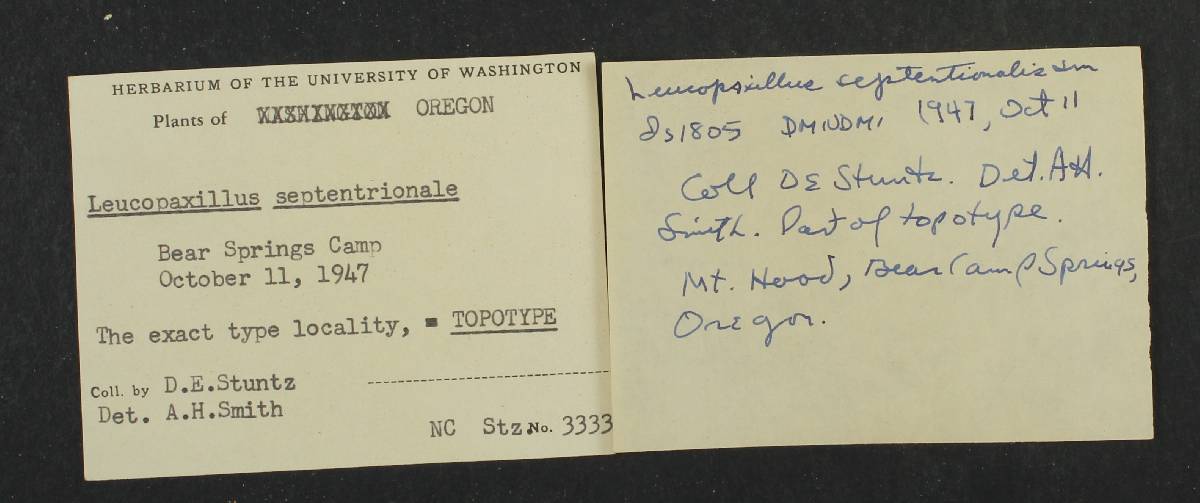 HERBARIUM OF THE UNIVERSITY OF WASHINGTON
Plants of WASHINGTON OREGON
Leucopaxillus septentrionale
Bear Springs Camp
October 11, 1947
The exact type locality, = TOPOTYPE
Coll. by D.E.Stuntz
Det. A.H.Smith
NC Stz. No. 3333
Leucopaxillus septentionalis Sm
1805 1947, Oct 11
Coll DE Stuntz. Det. AH.
Smith. Part of topotype.
Mt. Hood, Bear Camp Springs,
Oregon.